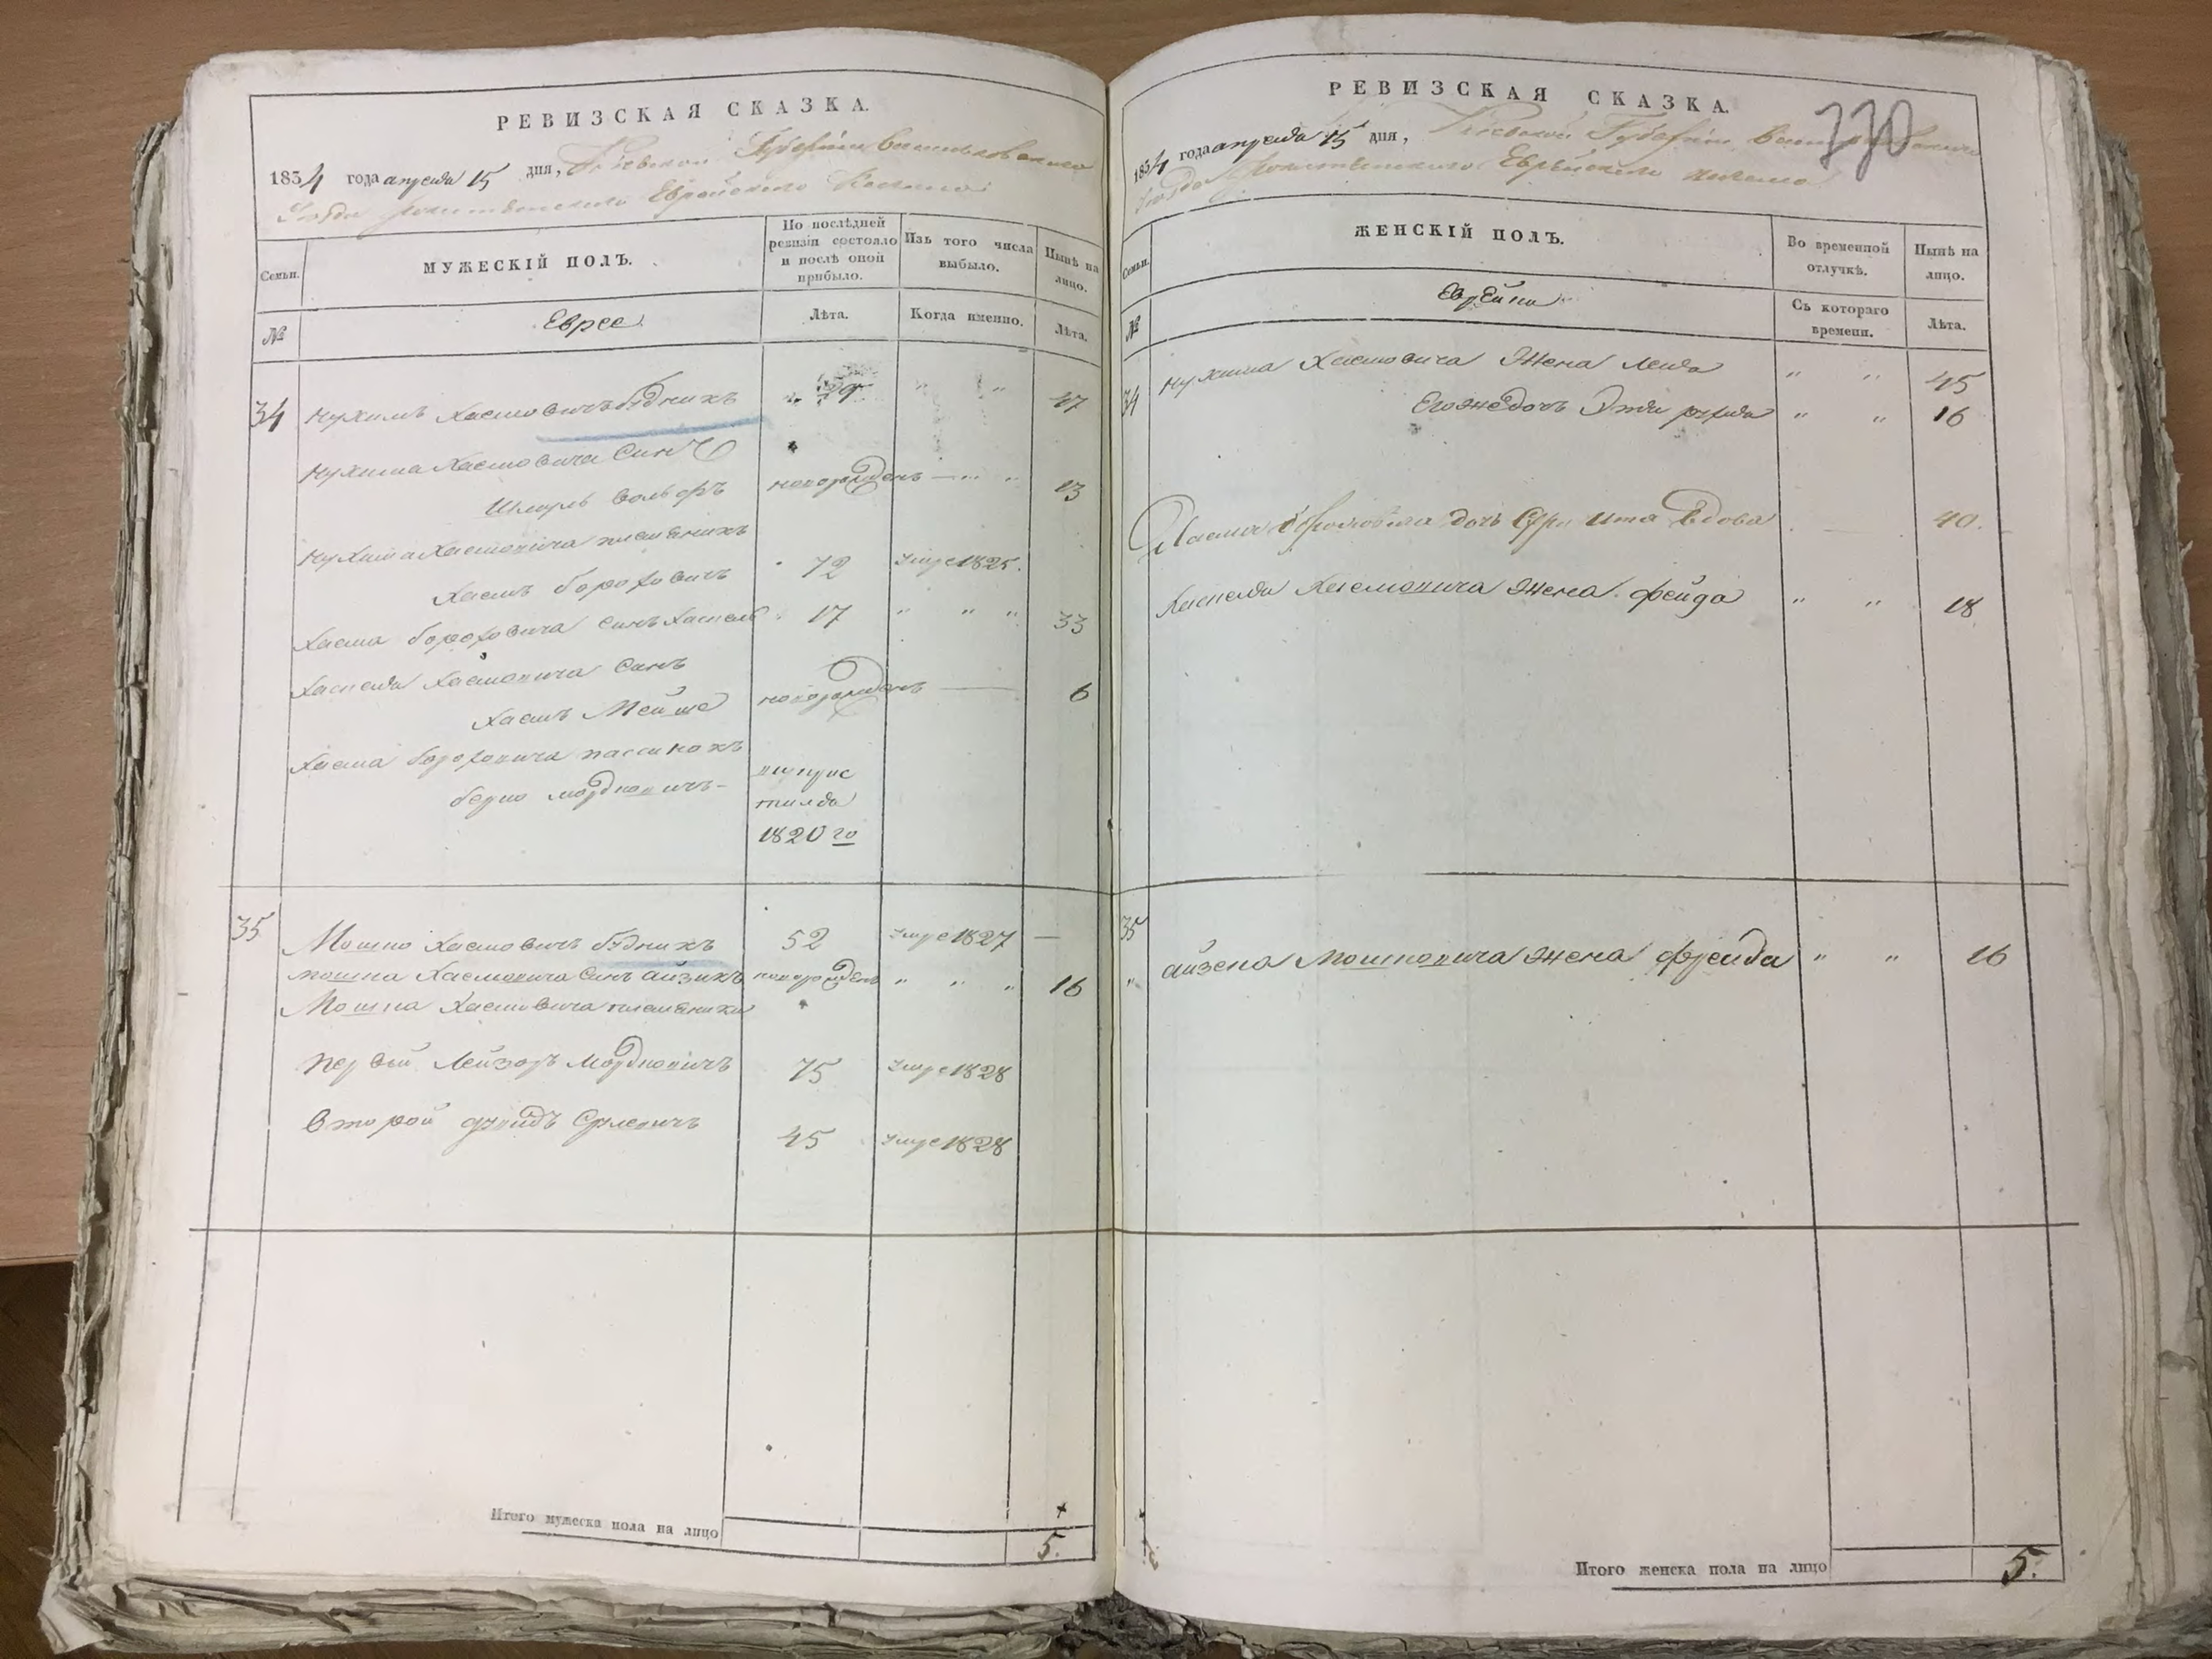 РЕВИЗСКАЯ СКАЗКА.
1834 года апреля 15 дня, Киевской Губернии Васильковского
Уезда Еврейского
Семьи.
МУЖЕСКІЙ ПОЛЪ.
По послѣдней ревизіи состояло и послѣ оной прибыло.
Изъ того числа выбыло.
Нынѣ на лицо.
№
Еврее
Лѣта.
Когда именно.
Лѣта.
34 Нухимъ Хаемовичъ Бѣдникъ 47
Нухима Хаемовича Синъ
Шмуль Вольфъ новорожденъ — " " 13
Нухима Хаемовича племеникъ
Хаемъ Бороховичъ 72 умре 1825.
Хаема Бороховича синъ Хаскель 17 " " " 33
Хаскеля Хаемовича Синъ
Хаемъ Мейше новорожденъ — 6
Хаема Бороховича пассинокъ
Берко Мордковичъ -
1820 го
35 Мошко Хаемовичъ Бѣдникъ 52 умре 1827 —
Мошка Хаемовича Синъ Айзикъ новорожденъ " " " 16
Мошка Хаемовича племеники
первый Лейзоръ Мордковичъ 75 умре 1828
Второй Срулевичъ 45 умре 1828
Итого мужеска пола на лицо 5.
РЕВИЗСКАЯ СКАЗКА.
330
1834 года апреля 15 дня, Киевской Губернии
Уезда Еврейского
Семьи.
ЖЕНСКІЙ ПОЛЪ.
Во временной отлучкѣ.
Нынѣ на лицо.
№
Еврейки
Съ котораго времени.
Лѣта.
34 Нухима Хаемовича Жена Леда " " 45
Его же дочь " " 16
дочь Вдова — 40.
Хаскеля Хаемовича жена фейга " " 18
35 Айзека Мошковича жена фрейда " " 16
Итого женска пола на лицо 5.